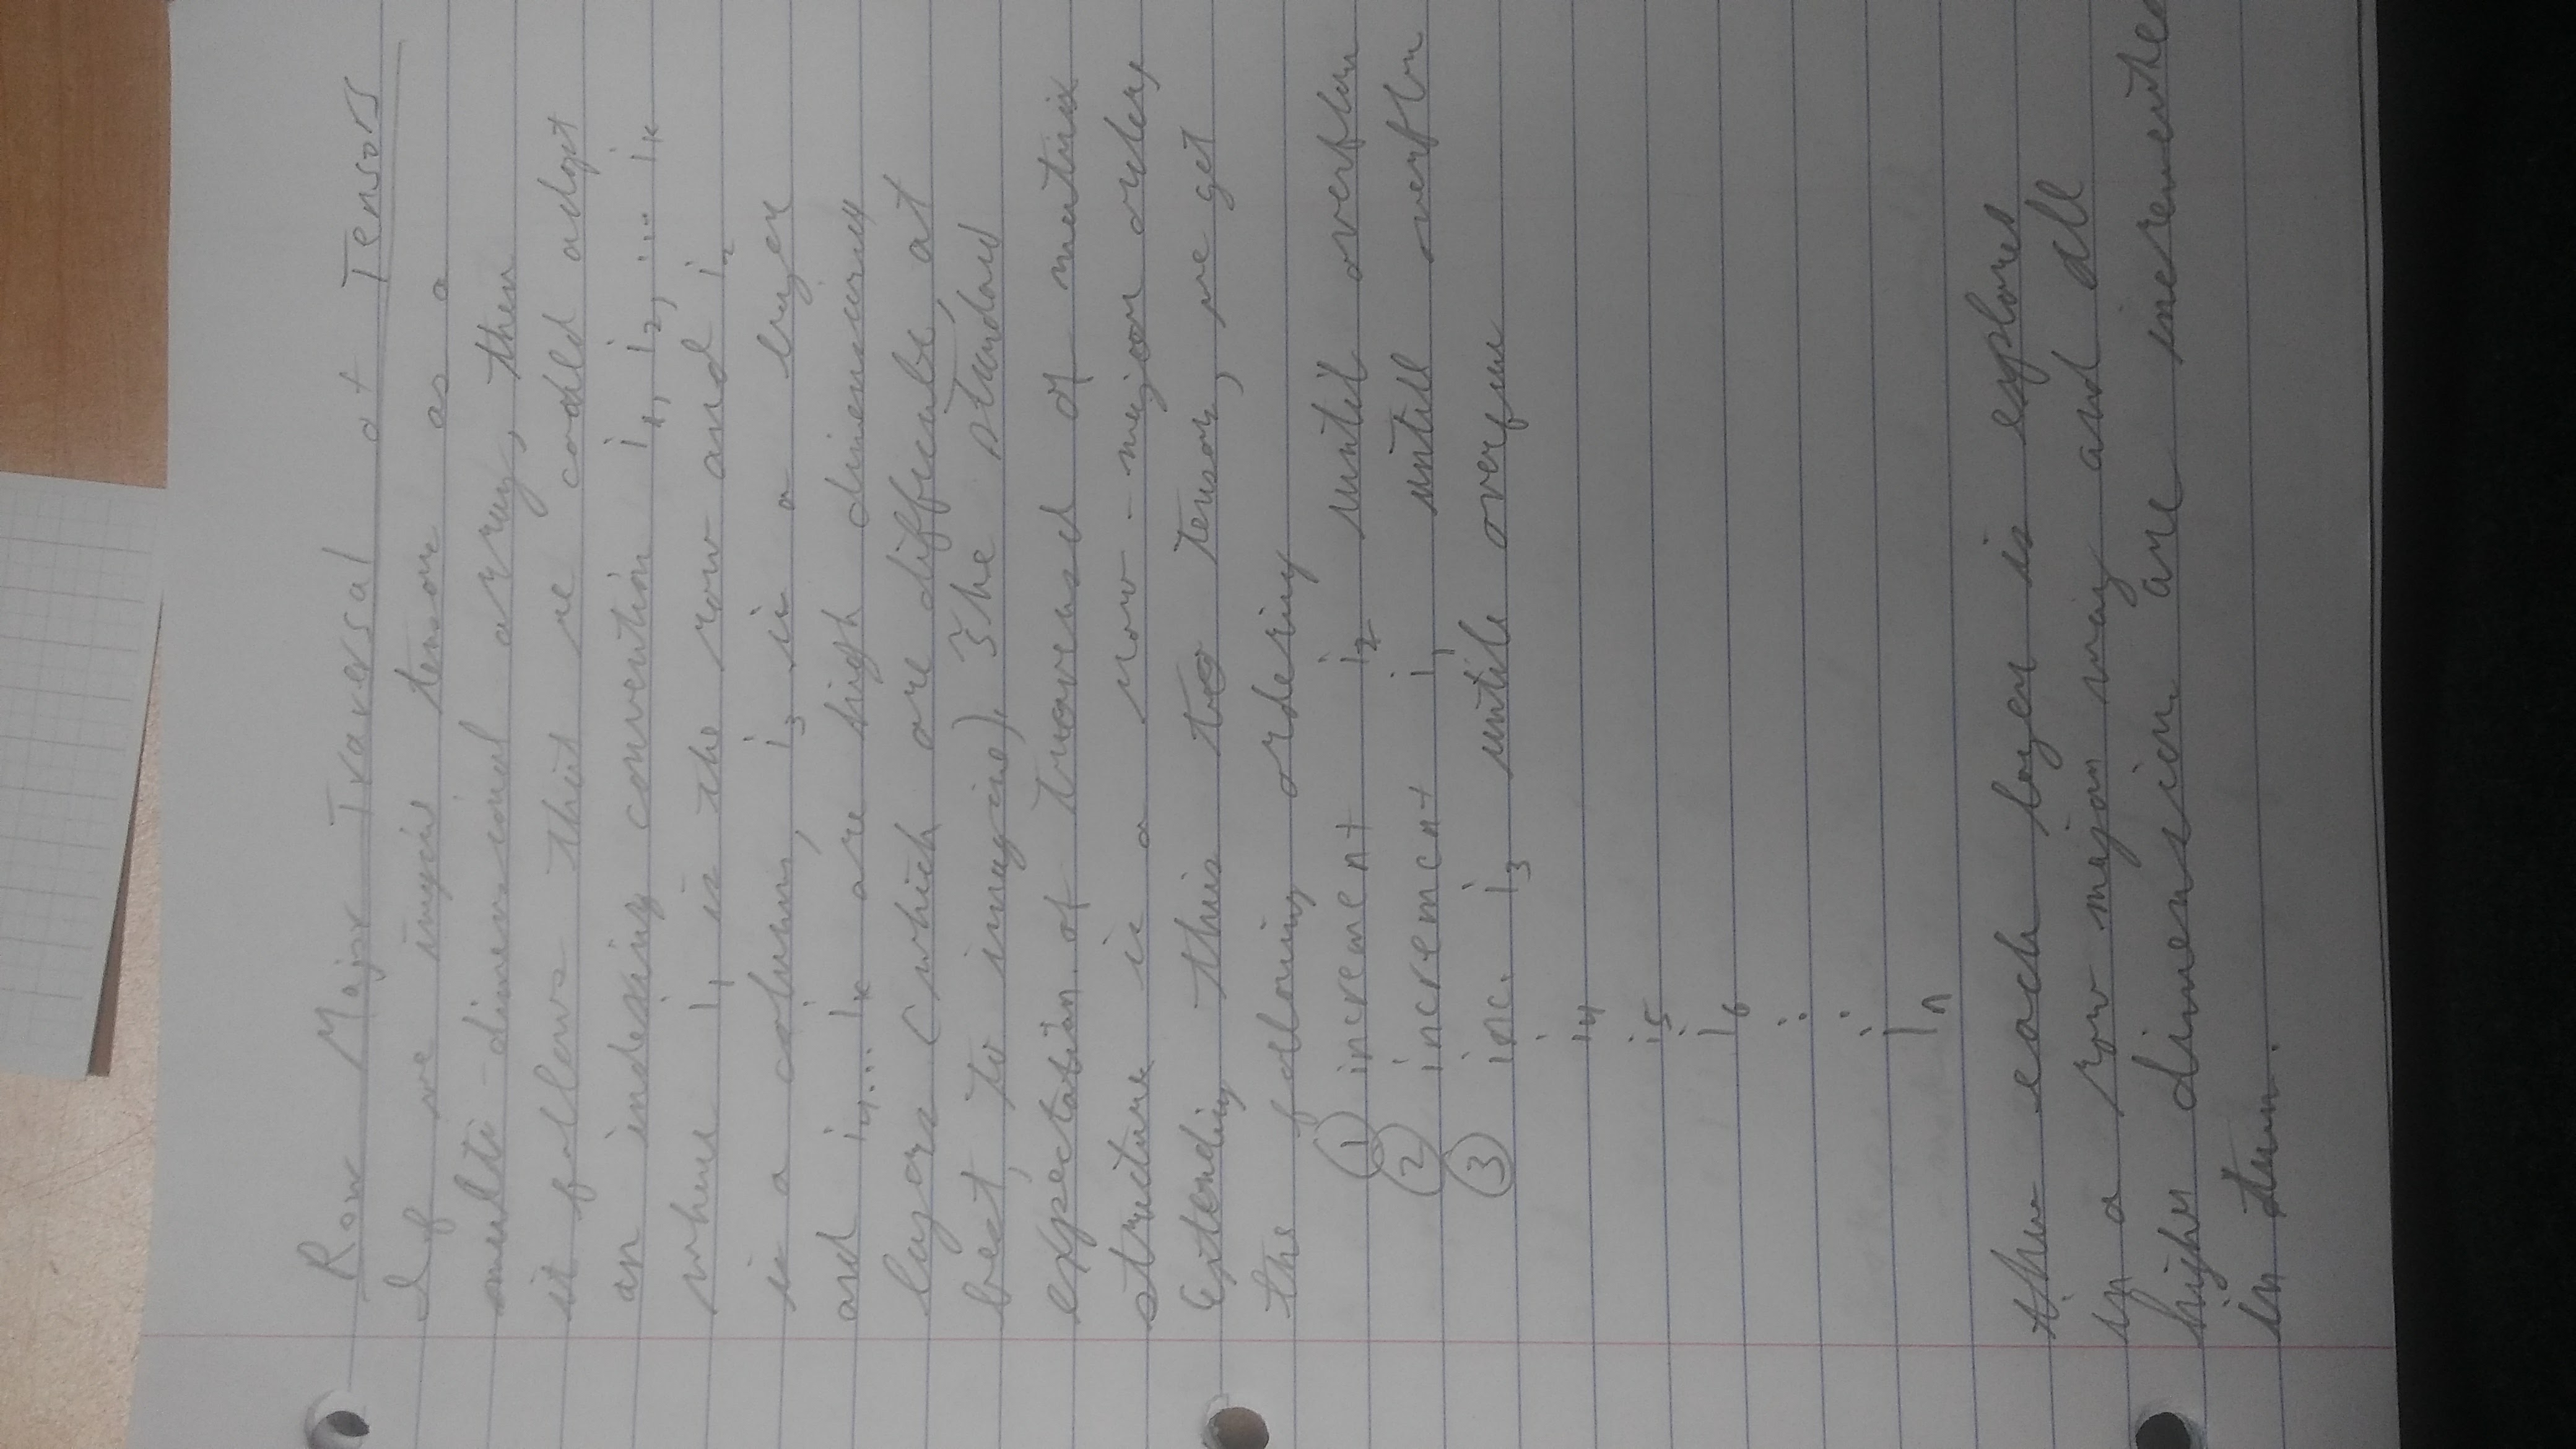 Row Major Traversal of Tensors
If we imagine tensors as a
multi-dimensional array, then
it follows that we could adopt
an indexing convention i1, i2, ... ik
where i1 is the row and i2
is a column, i3 is a layer
and i4... ik are high dimensional
layers (which are difficult, at
best, to imagine). The standard
expectation of traversal of matrix
structure is a row-major order,
Extending this to tensors, we get
the following ordering
① increment i2 until overflow
② increment i1 untill overflow
③ inc. i3 until overflow
i4
i5
i6
:
.
in
each layer is explored
in a row major way and all
higher dimensions are incremented
in turn.